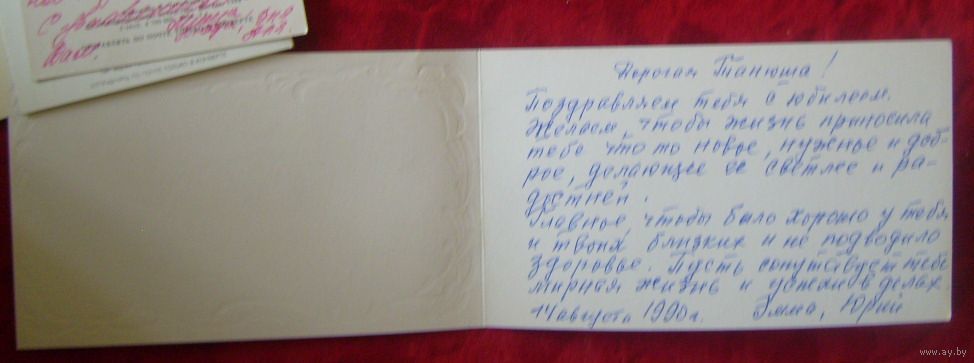 Дорогая Танюша!
Поздравляем тебя с юбилеем.
Желаем, чтобы жизнь приносила
тебе что то новое, нужное и доб-
рое, делающее ее светлее и ра-
достней.
Главное, чтобы было хорошо у тебя
и твоих близких и не подводило
здоровье. Пусть сопутствует тебе
мирная жизнь и успехи в делах.
14 августа 1990 г. Эмма, Юрий
www.ay.by